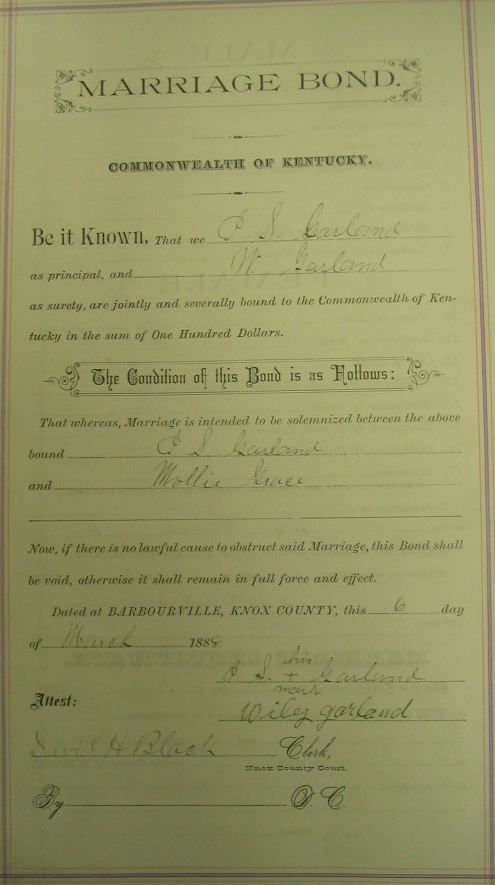 MARRIAGE BOND.
COMMONWEALTH OF KENTUCKY.
Be it Known, That we P S. Garland
as principal, and W. Garland
as surety, are jointly and severally bound to the Commonwealth of Ken-
tucky in the sum of One Hundred Dollars.
The Condition of this Bond is as Follows:
That whereas, Marriage is intended to be solemnized between the above
bound P S. Garland
and Mollie Grace
Now, if there is no lawful cause to obstruct said Marriage, this Bond shall
be void, otherwise it shall remain in full force and effect.
Dated at BARBOURVILLE, KNOX COUNTY, this 6 day
of March 188
his
P S. + Garland
mark
Attest:
Wiley garland
H Black Clerk,
Knox County Court.
By D. C.